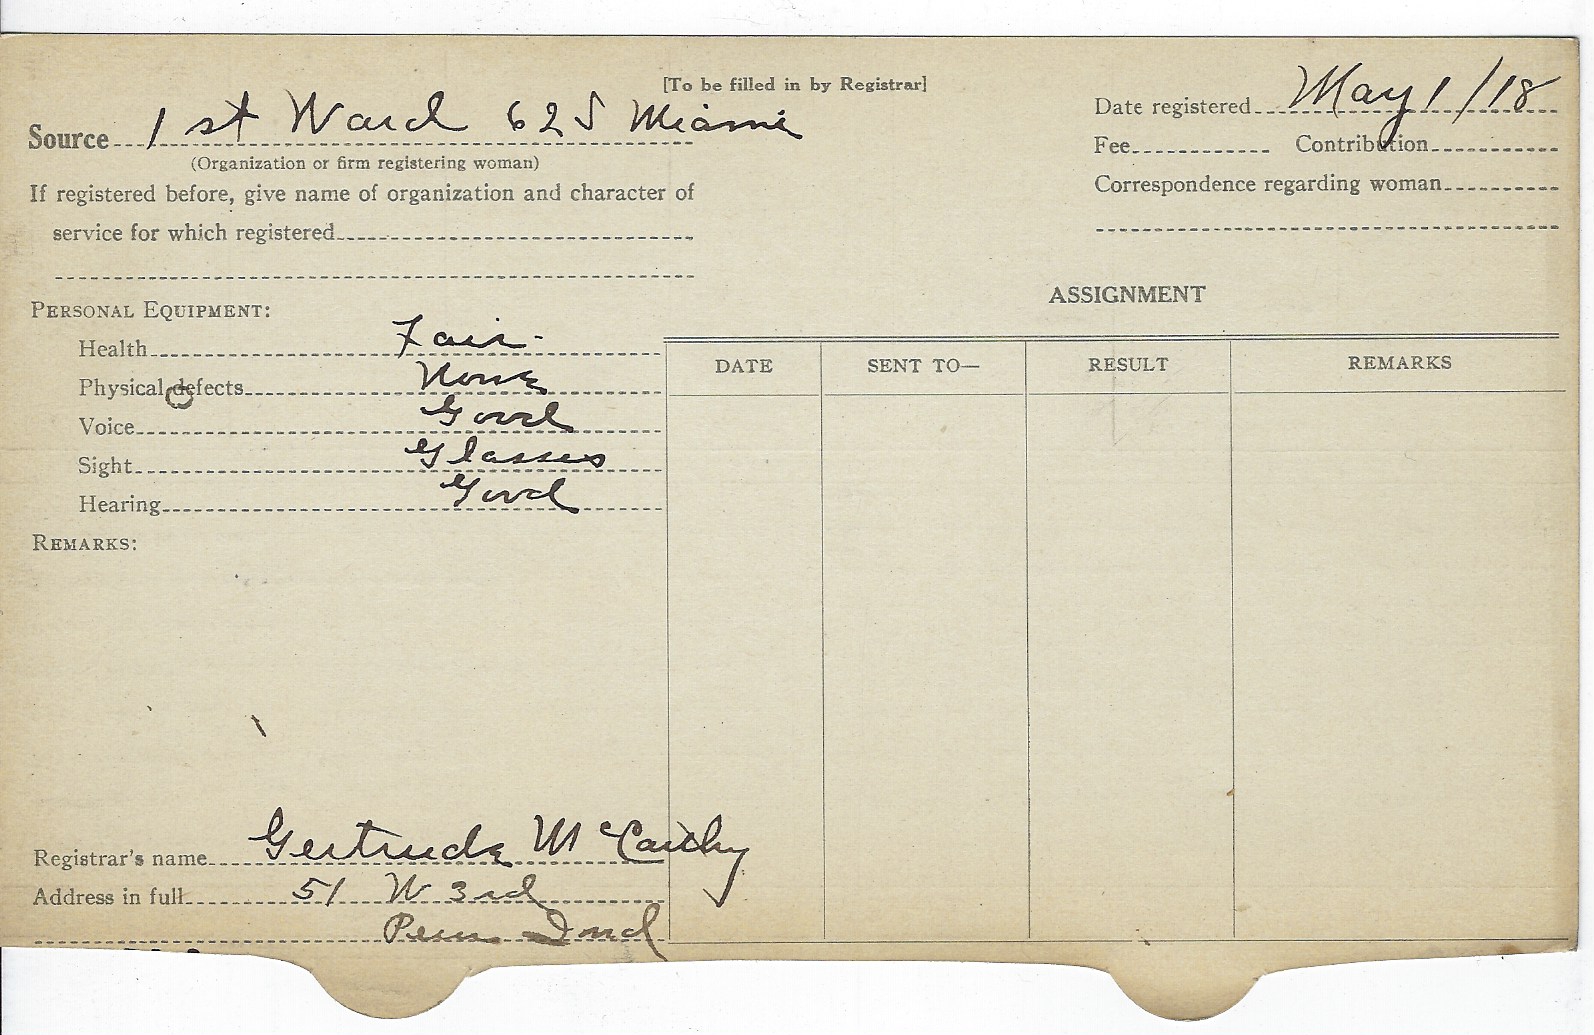 [To be filled in by Registrar]
Source 1st Ward 625 Miami
(Organization or firm registering woman)
If registered before, give name of organization and character of
service for which registered
Date registered May 1/18
Fee Contribution
Correspondence regarding woman
PERSONAL EQUIPMENT:
Health Fair.
Physical defects None
Voice Good
Sight Glasses
Hearing Good
REMARKS:
ASSIGNMENT
DATE SENT TO— RESULT REMARKS
Registrar's name Gertrude McCarthy
Address in full 51 W 3rd
Peru Ind